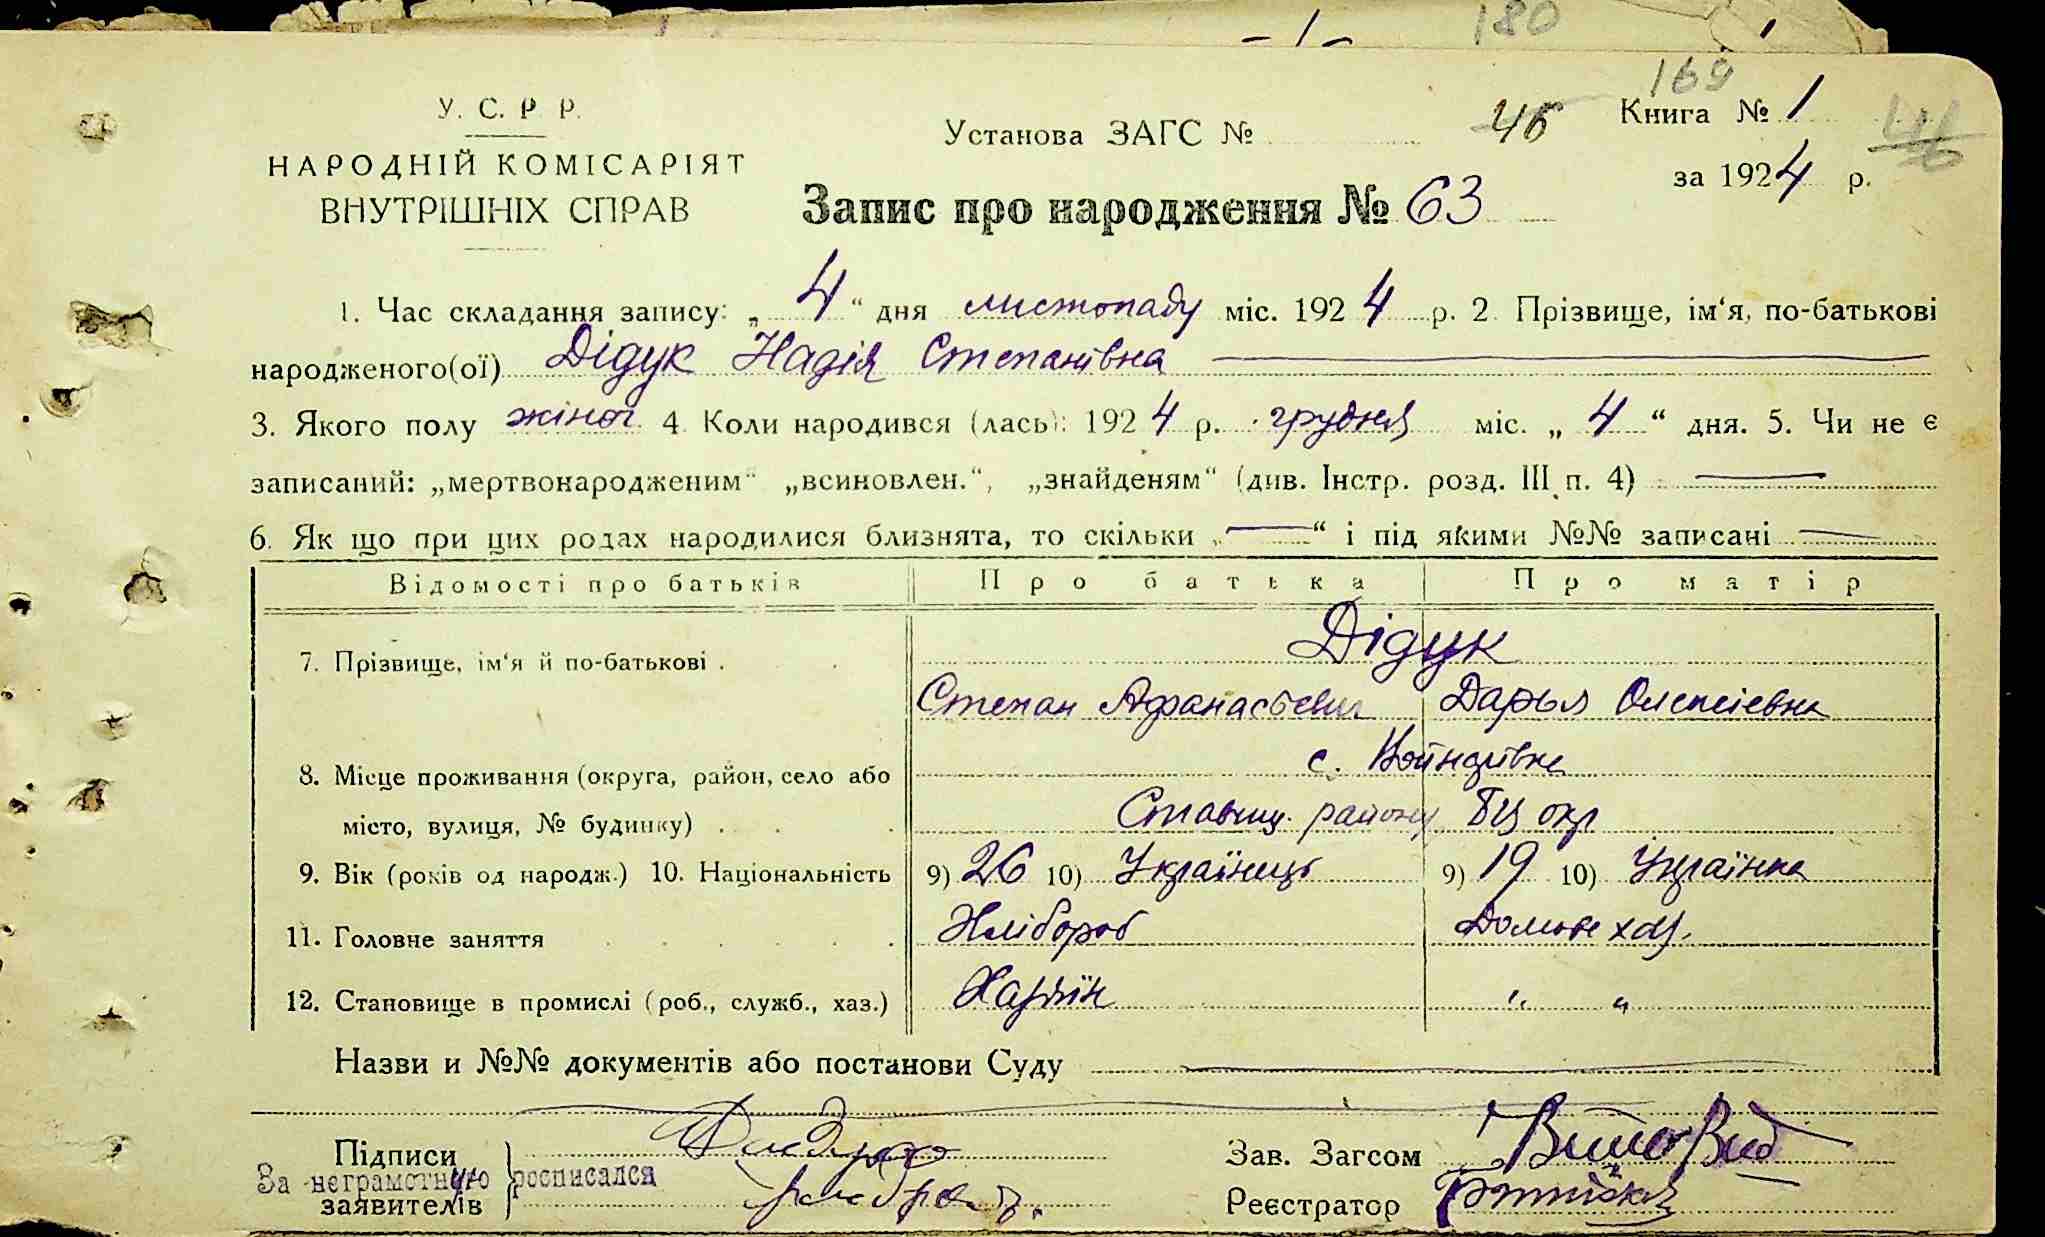 180
169
У. С. Р. Р.
Установа ЗАГС № 46
Книга № 1
46
НАРОДНІЙ КОМІСАРІЯТ
ВНУТРІШНІХ СПРАВ
за 1924 р.
Запис про народження № 63
1. Час складання запису: „ 4 “ дня листопаду міс. 1924 р. 2. Прізвище, ім‘я, по-батькові
народженого(ої) Дідук Надія Степанівна
3. Якого полу жіноч. 4. Коли народився (лась): 1924 р. грудня міс. „ 4 “ дня. 5. Чи не є
записаний: „мертвонародженим“ „всиновлен.“, „знайденям“ (див. Інстр. розд. III п. 4)
6. Як що при цих родах народилися близнята, то скільки „ — “ і під якими №№ записані —
Відомості про батьків Про батька Про матір
Дідук
7. Прізвище, ім‘я й по-батькові .
Степан Афанасьевич Дарья Олексіевна
с. Войндівка
8. Місце проживання (округа, район, село або
місто, вулиця, № будинку) . . . Ставищ. району БЦ окр
9. Вік (років од народж.) 10. Національність 9) 26 10) Українець 9) 19 10) Українка
11. Головне заняття . . . . . Хлібороб Домове хаз.
12. Становище в промислі (роб., служб., хаз.) Хазяїн " "
Назви и №№ документів або постанови Суду
Підписи
заявителів
За неграмотную росписался
Зав. Загсом
Реєстратор